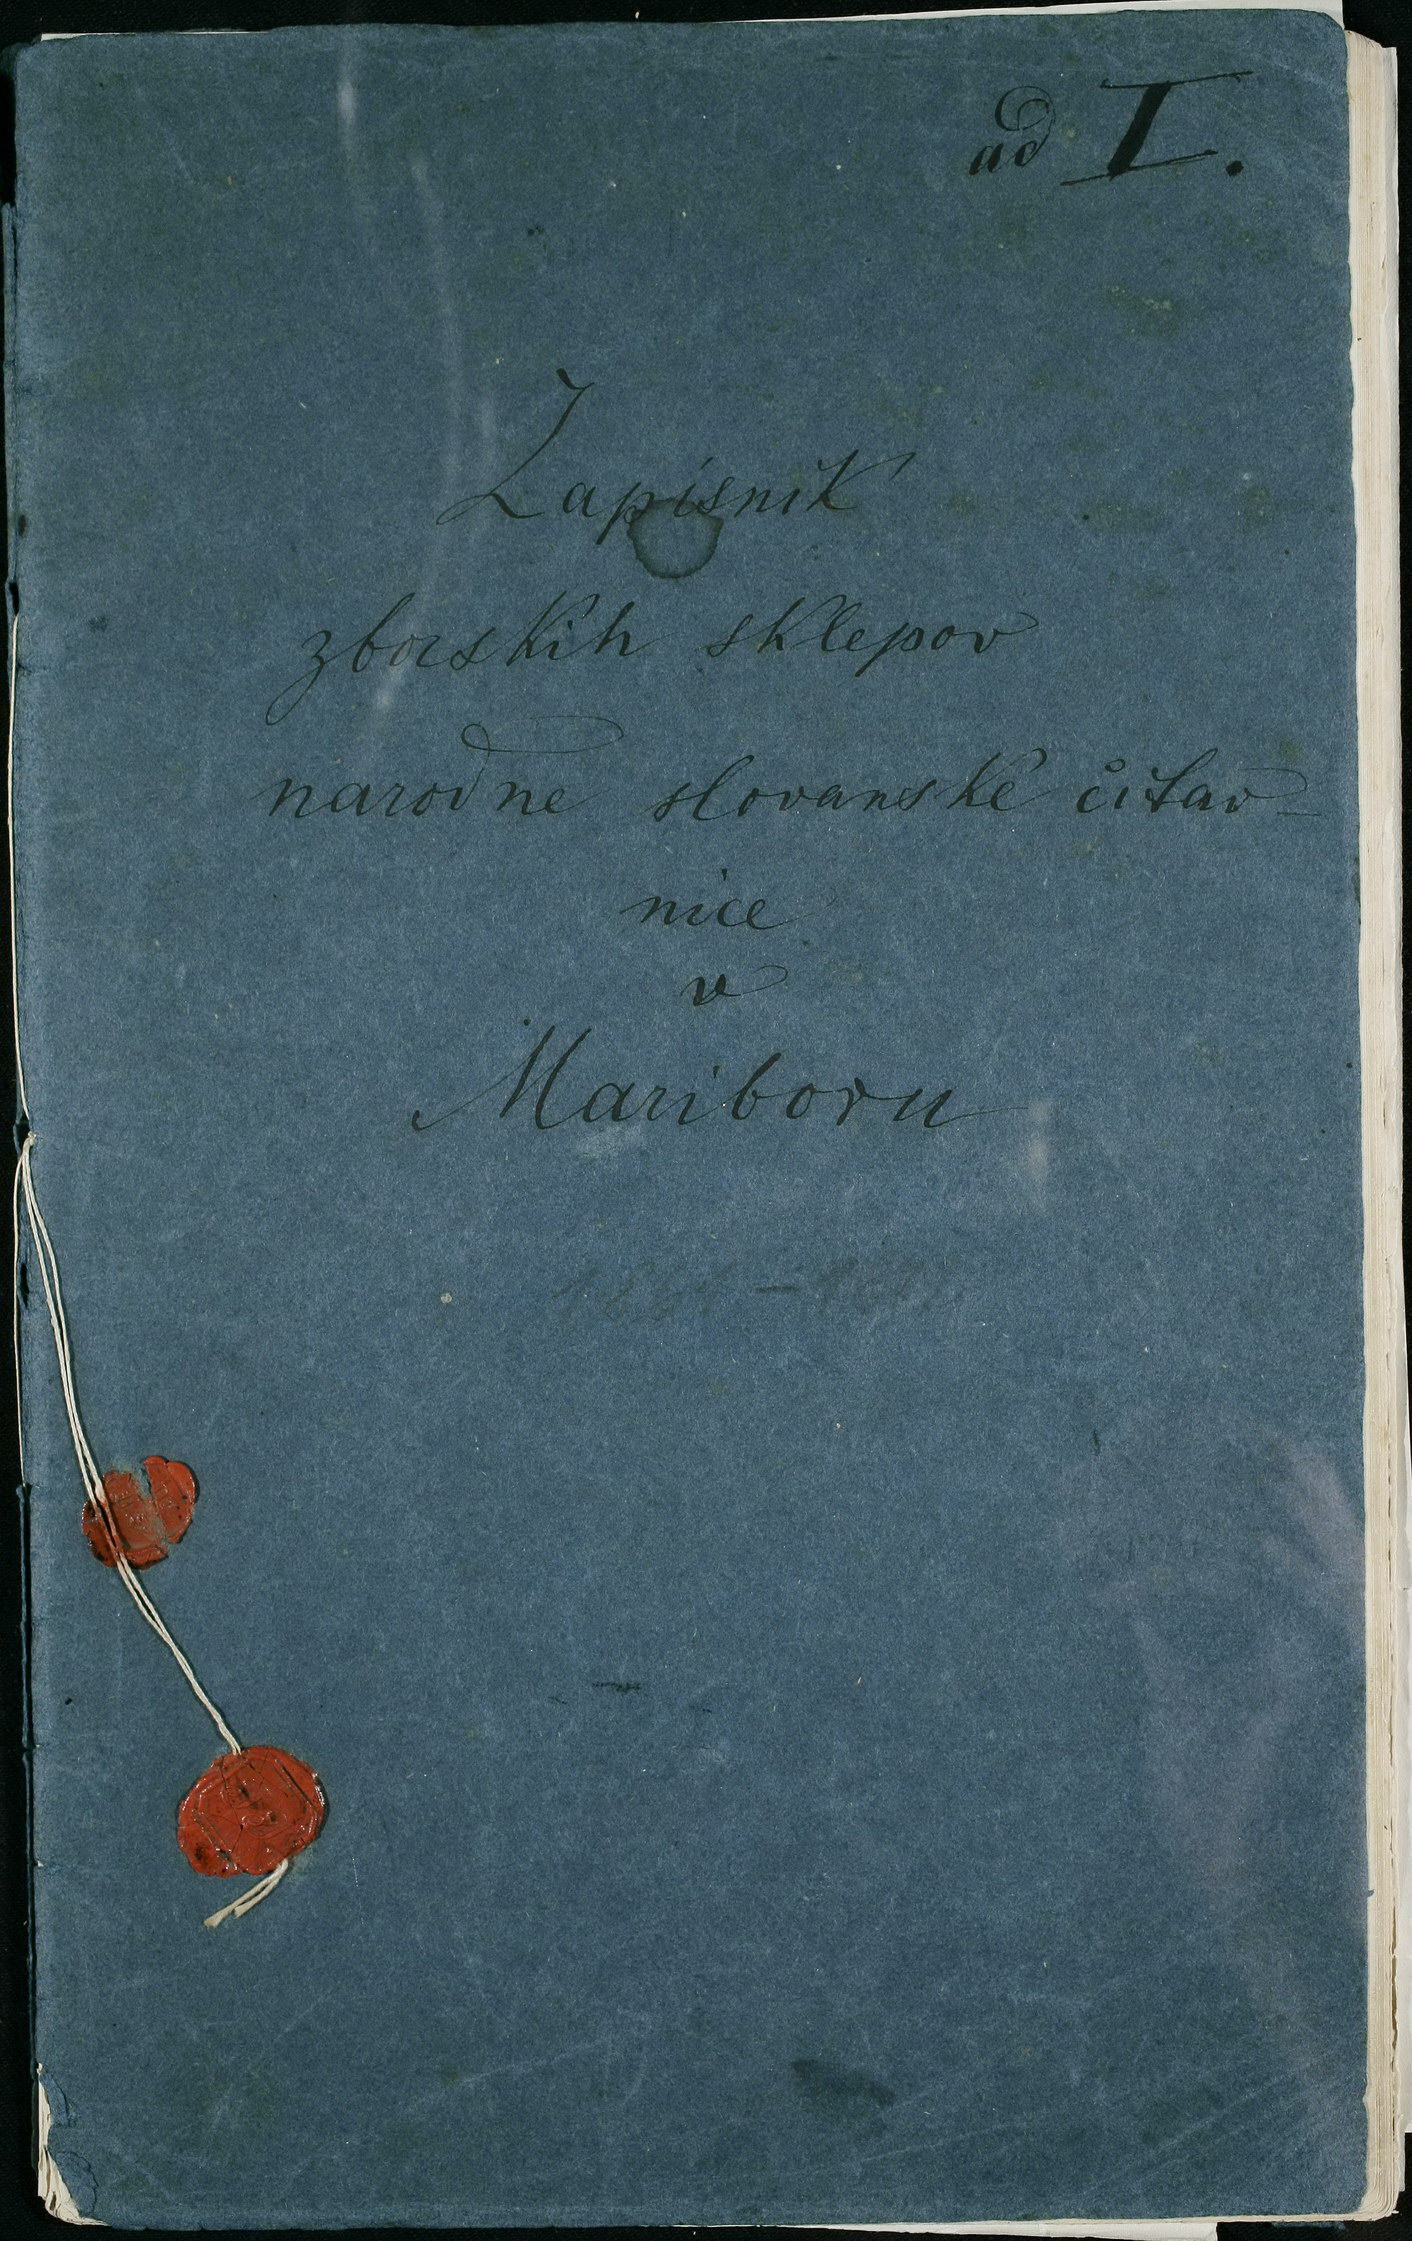 ad I.
Zapisnik
zborskih sklepov
narodne slovanske čitav-
nice
v
Mariboru